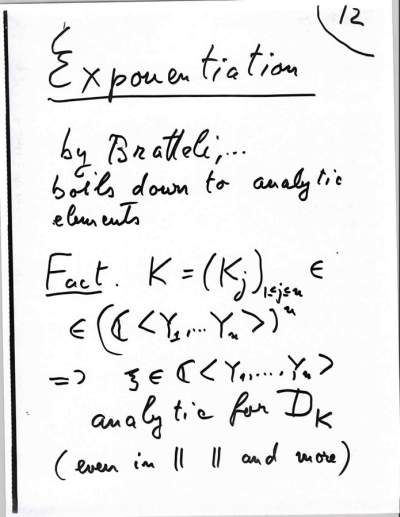 12
Exponentiation
by Bratteli,...
boils down to analytic
elements
Fact. K = (Kj)1≤j≤n ∈
∈ (ℂ<Y1,...Yn>)^n
=> ξ ∈ ℂ<Y1,...,Yn>
analytic for D_K
(even in || || and more)